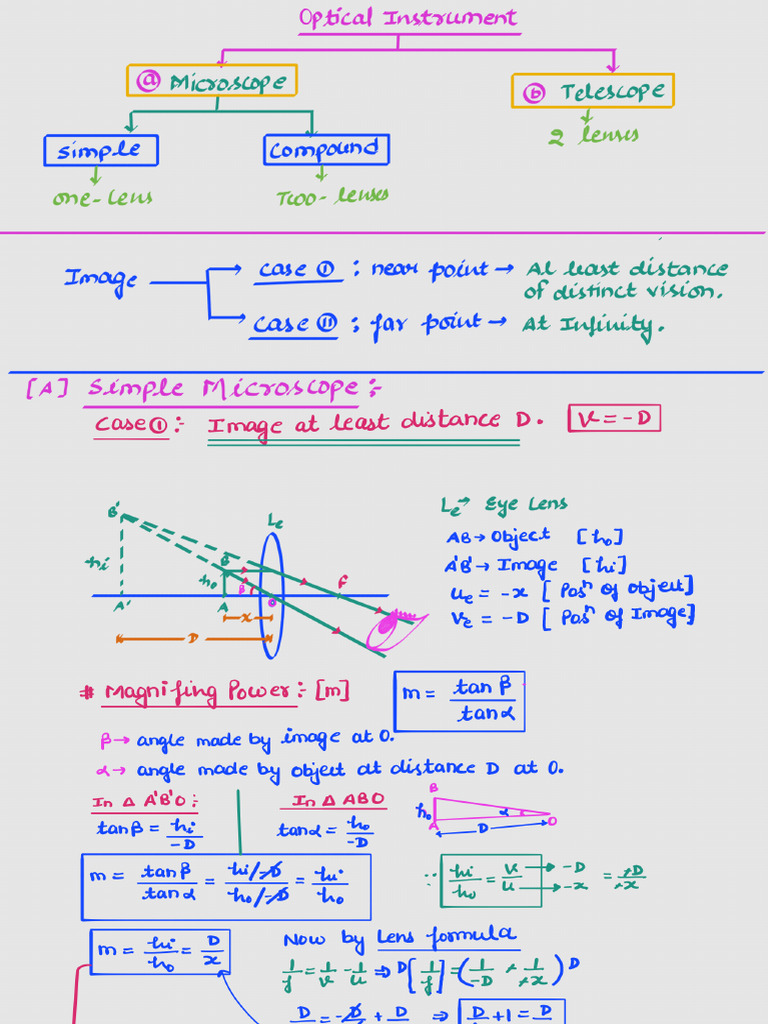 Optical Instrument
ⓐ Microscope
ⓑ Telescope
2 lenses
Simple
Compound
one-lens
Two-lenses
Image
Case Ⓘ : near point → At least distance
of distinct vision.
Case Ⓘⓘ : far point → At Infinity.
[A] Simple Microscope :-
Case Ⓘ :- Image at least distance D. V = -D
B' Le
hi B ho β F
A' A O
x
D
Le → Eye Lens
AB → Object [ho]
A'B' → Image [hi]
ue = -x [Posn of object]
Ve = -D [Posn of Image]
# Magnifing Power :- [m]
m = tanβ / tanα
β → angle made by image at O.
α → angle made by object at distance D at O.
In Δ A'B'O :-
tanβ = hi/-D
In Δ ABO
tanα = ho/-D
B ho A α O D
m = tanβ/tanα = (hi/-D)/(ho/-D) = hi/ho
∵ hi/ho = v/u → -D → -x = +D/+x
m = hi/ho = D/x
Now by lens formula
1/f = 1/v - 1/u ⇒ D[1/f] = (1/-D + 1/+x) D
D = -D + D ⇒ D + 1 = D